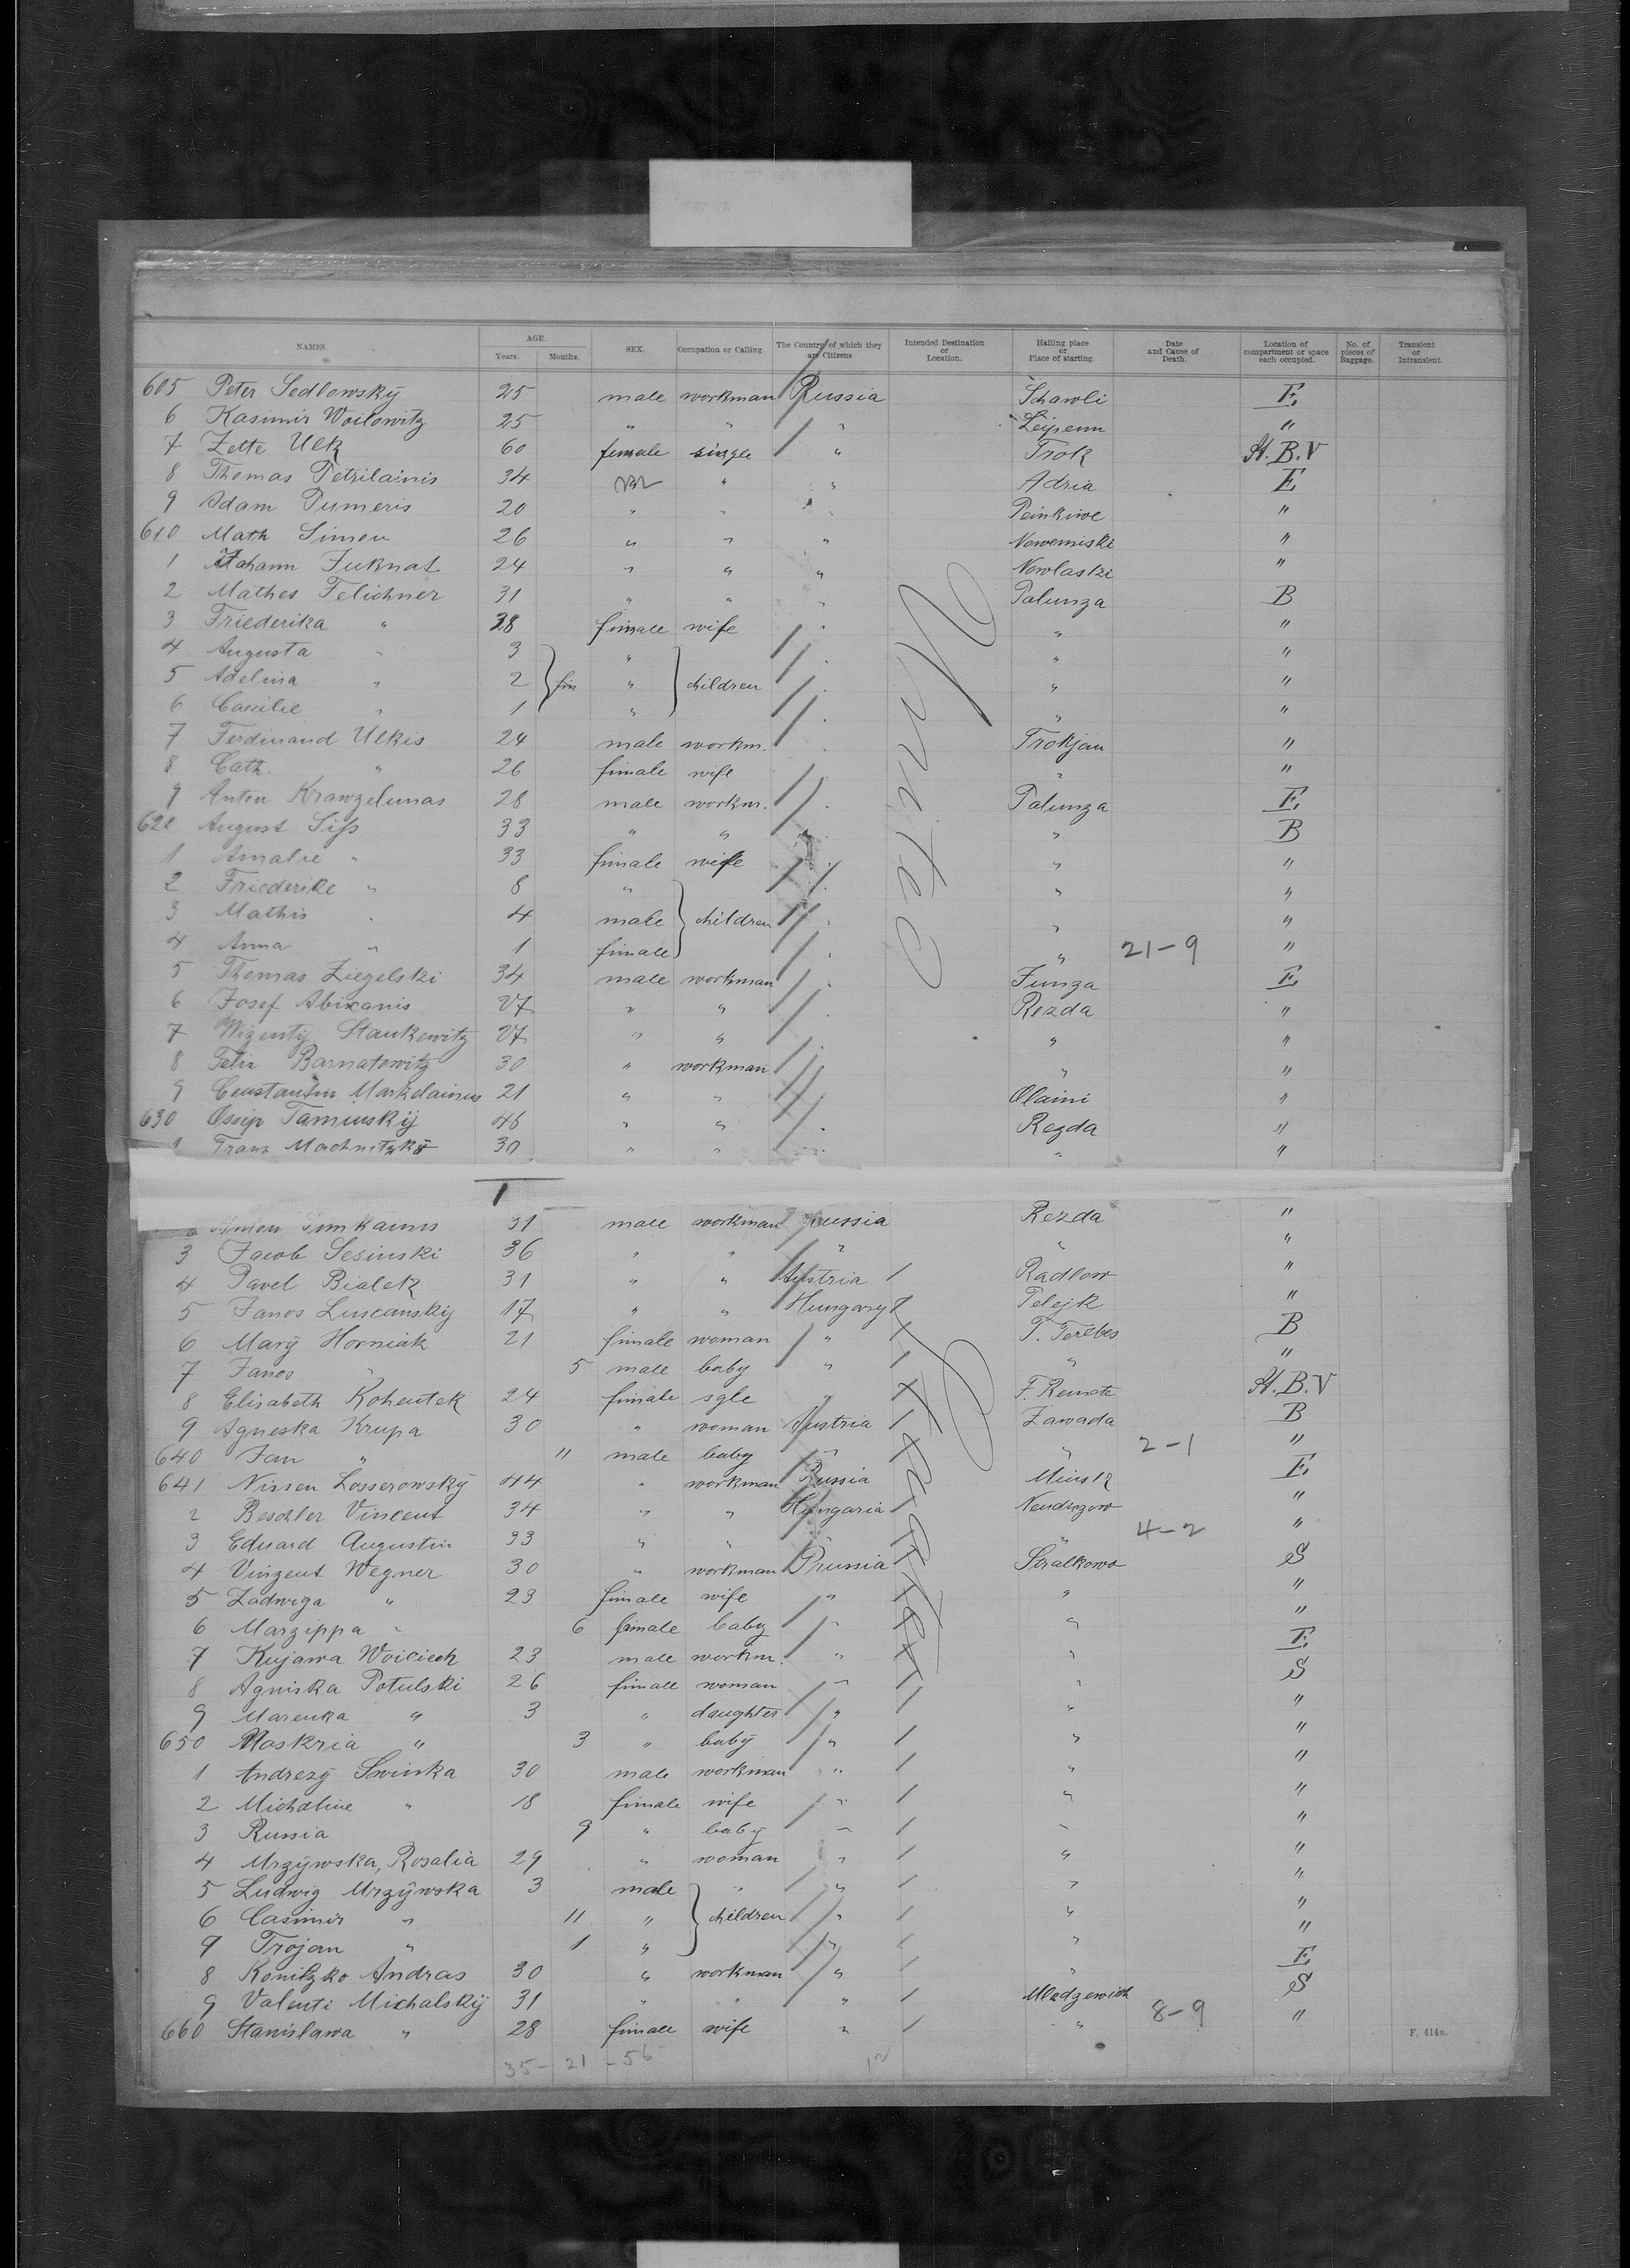 NAMES. AGE. Years. Months. SEX. Occupation or Calling. The Country of which they are Citizens Intended Destination or Location. Hailing place or Place of starting. Date and Cause of Death. Location of compartment or space each occupied. No. of pieces of Baggage. Transient or Intransient.
605 Peter Sedlowskÿ 25 male workman Russia Schawli E.
6 Kasimir Woilowitz 25 " " " Leipenn "
7 Zette Ulk 60 female single " Trok St. B. V
8 Thomas Petrilainis 34 " " Adria E
9 Adam Dumeris 20 " " " Peinkiwe "
610 Math Simon 26 " " " Nowemiski "
1 Johann Juknat 24 " " " Nowlaski "
2 Mathes Felichner 31 " " " Palunga B
3 Friederika " 28 female wife " " "
4 Augusta " 3 " " "
5 Adelina " 2 " children " "
6 Cacilie " 1 " " "
7 Ferdinand Ulkis 24 male workm. Trokjan "
8 Cath. " 26 female wife " "
9 Anton Krawzelunas 28 male workm. Palunga E.
620 August Siss 33 " " " B
1 Amalie " 33 female wife " "
2 Friederike " 8 " " "
3 Mathis " 4 male children " "
4 Anna " 1 female " 21-9 "
5 Thomas Ziegelski 34 male workman Funga E.
6 Josef Abixanis 27 " " Rezda "
7 Wizentÿ Stankewitz 27 " " " "
8 Felix Barnatowitz 30 " workman " "
9 Constantin Markdainus 21 " " Olaini "
630 Ossip Tamuskij 48 " " Rezda "
1 Franz Machnitzkÿ 30 " " " "
31 male workman Russia Rezda "
3 Jacob Sesinski 36 " " " " "
4 Pavel Bialek 31 " " Austria Radlow "
5 Janos Luscanskÿ 17 " " Hungary Pelejk "
6 Marÿ Horniak 21 female woman " T. Terebes B
7 Janos " 5 male baby " " "
8 Elisabeth Kohentek 24 female sgle " F. Remete St. B. V
9 Agneska Krupa 30 " woman Austria Zawada B
640 Jan " 11 male baby " " 2-1 "
641 Nissen Losserowskÿ 44 " workman Russia Minsk E.
2 Beschler Vincent 34 " " Hungaria "
3 Eduard Augustin 33 " " " 4-2 "
4 Vinzent Wegner 30 " workman Prussia Stralkowo S
5 Zadwiga " 23 female wife " " "
6 Marzippa " 6 female baby " " "
7 Kujawa Woiciech 23 male workm. " " E.
8 Agniska Potulski 26 female woman " " S
9 Marenka " 3 " daughter " " "
650 Maskria " 3 " babÿ " " "
1 Andrezÿ Swinka 30 male workman " " "
2 Michaline " 18 female wife " " "
3 Russia 9 " baby " " "
4 Mrzÿwska, Rosalia 29 " woman " " "
5 Ludwig Mrzÿwska 3 male " " " "
6 Casimir " 11 " children " " "
7 Trojan " 1 " " " "
8 Konitzko Andras 30 " workman " " E.
9 Valenti Michalskÿ 31 " " " Mladzewich S
660 Stanislawa " 28 female wife " " 8-9 "
35- 21 - 56
F. 414n.